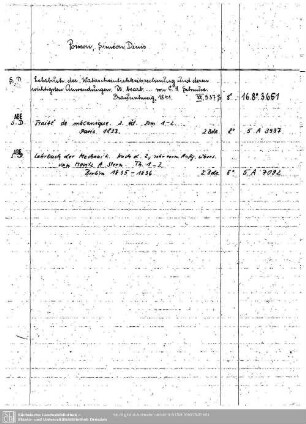 Poisson, Siméon Denis
S. D. Lehrbuch der Wahrscheinlichkeitsrechnung und deren
wichtigsten Anwendungen. Dt. bearb. ... von C. H. Schnuse.
Braunschweig, 1841 8° 16.8° 3651
S. D. Traité de mécanique. 2. éd. Tom 1-2.
Paris 1833. 2 Bde 8° 5 A
Lehrbuch der Mechanik. Nach d. 2., sehr verm. Aufg. übers.
von Moritz A. Stern. Th. 1-2
Berlin 1835-1836 2 Bde 8° 5 A 7092